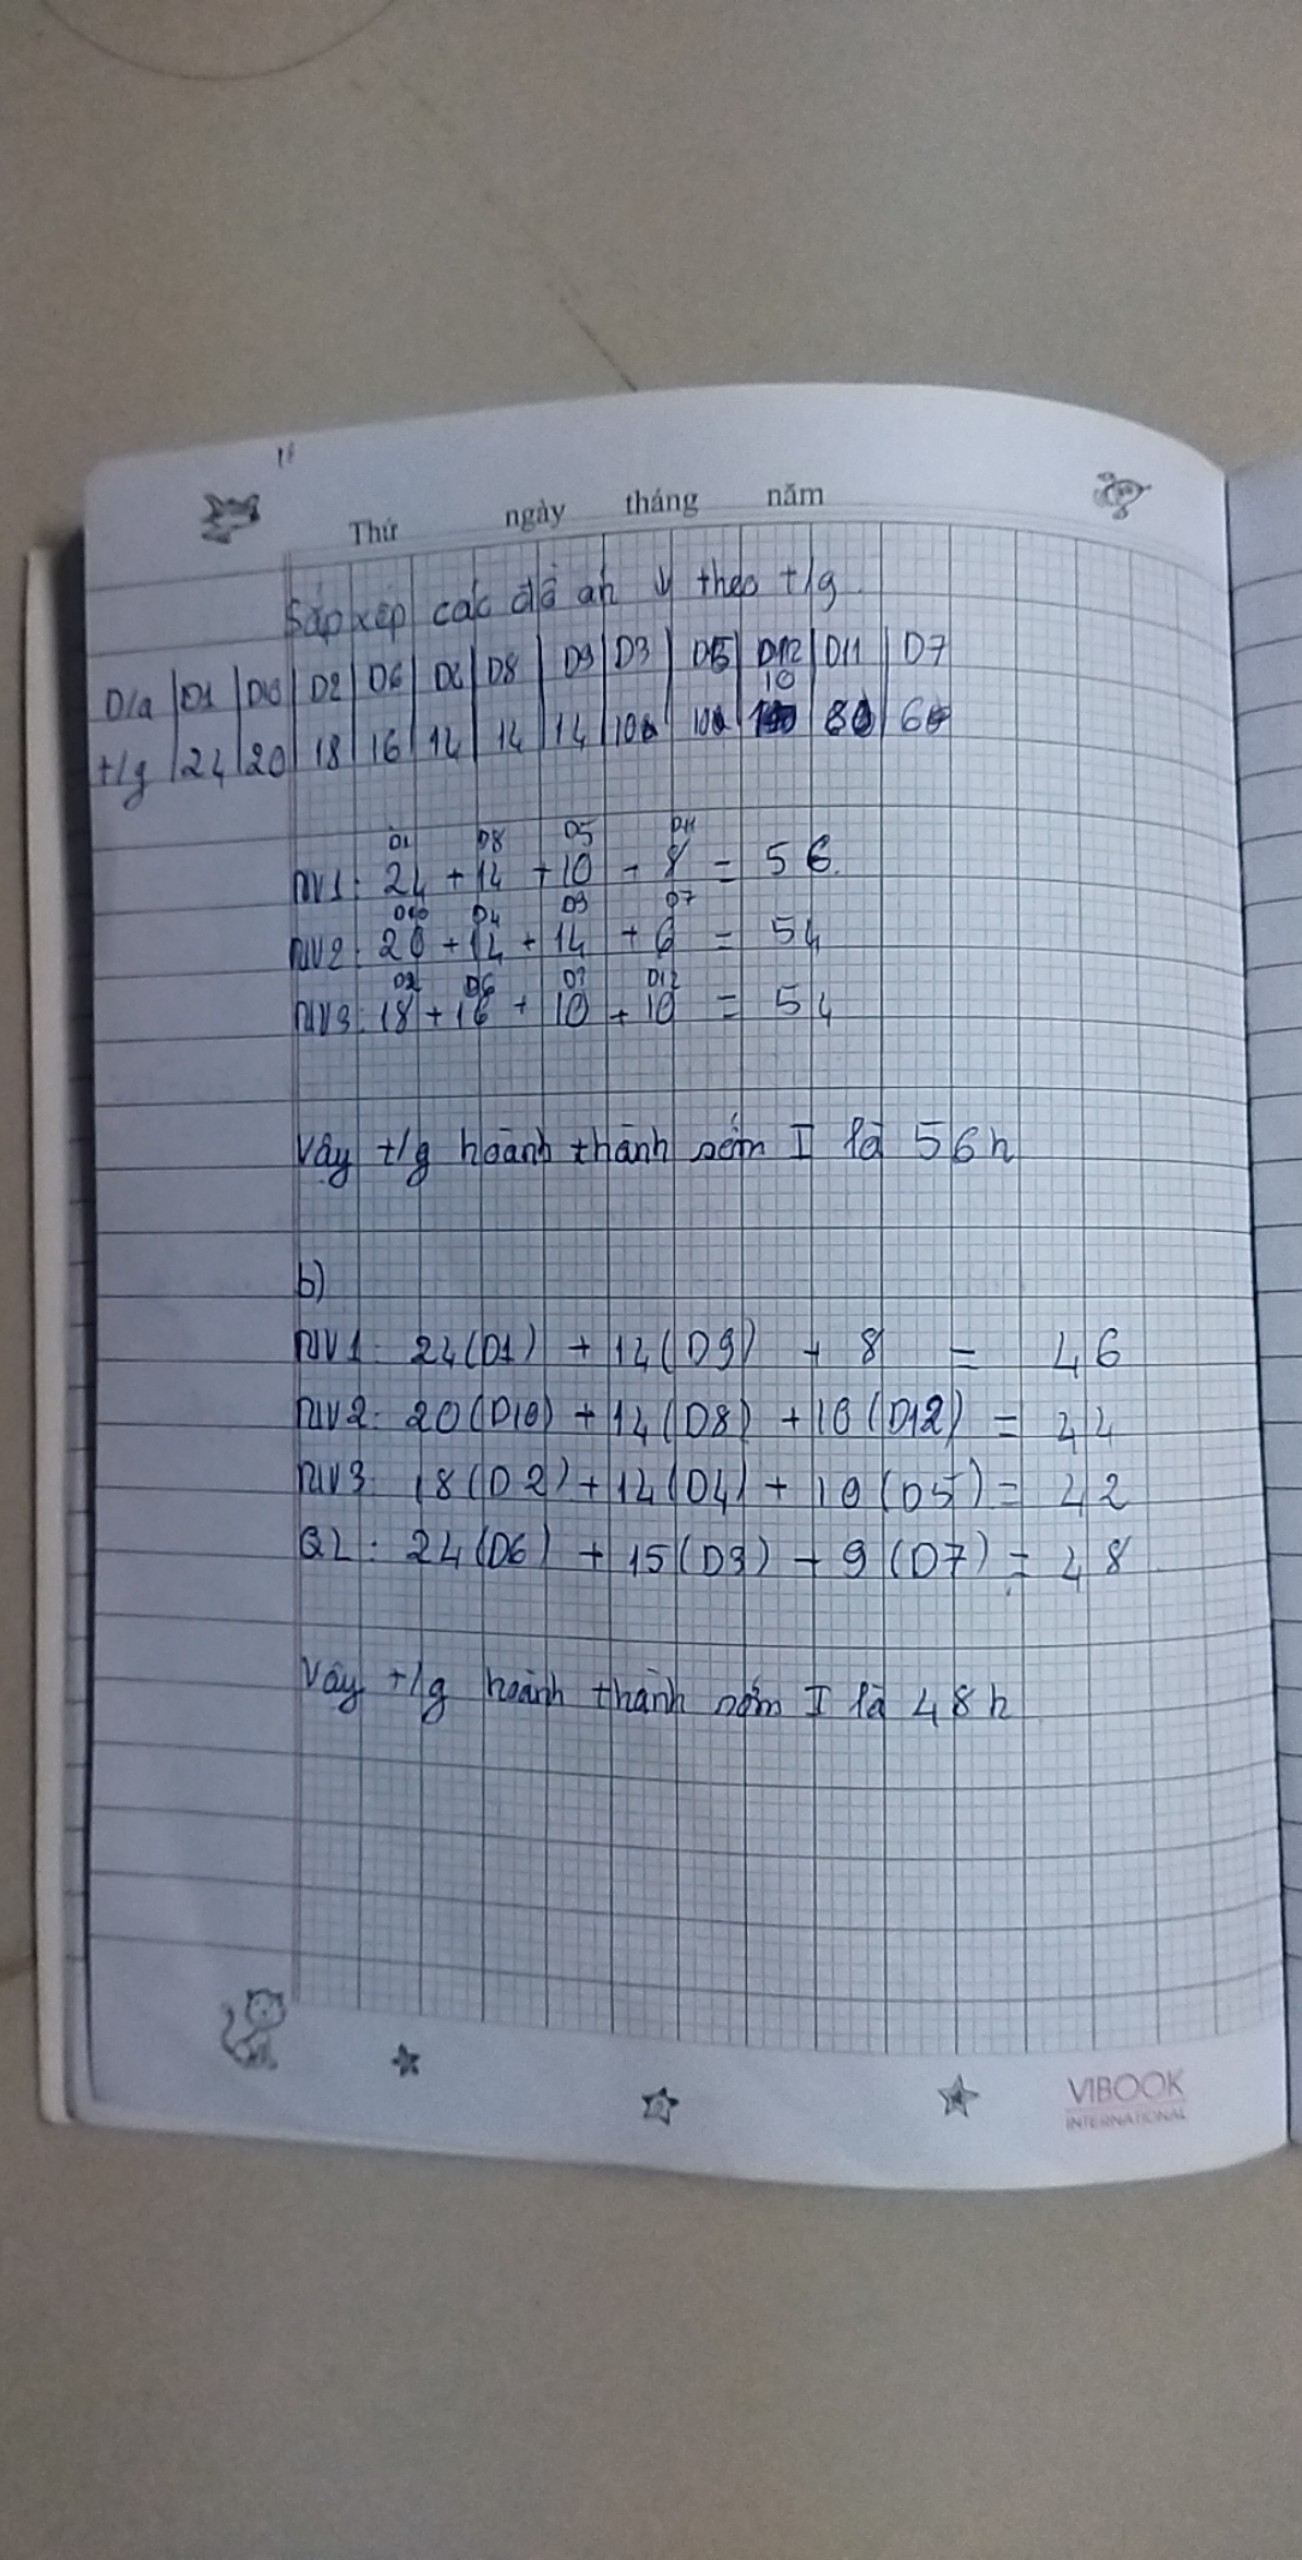 Thứ ngày tháng năm
Sắp xếp các đồ án ↓ theo t/g
D/a D1 D10 D2 D6 D4 D8 D9 D3 D5 D12 D11 D7
10
t/g 24 20 18 16 14 14 14 10 10 8 6
D1 D8 D5 D11
NV1: 24 + 14 + 10 + 8 = 56
D10 D4 D9 D7
NV2: 20 + 14 + 14 + 6 = 54
D2 D6 D3 D12
NV3: 18 + 16 + 10 + 10 = 54
Vậy t/g hoành thành sớm I là 56h
b)
NV1: 24(D1) + 14(D9) + 8 = 46
NV2: 20(D10) + 14(D8) + 10(D12) = 44
NV3: 18(D2) + 14(D4) + 10(D5) = 42
QL: 24(D6) + 15(D3) + 9(D7) = 48
Vậy t/g hoành thành sớm I là 48h
VIBOOK
INTERNATIONAL